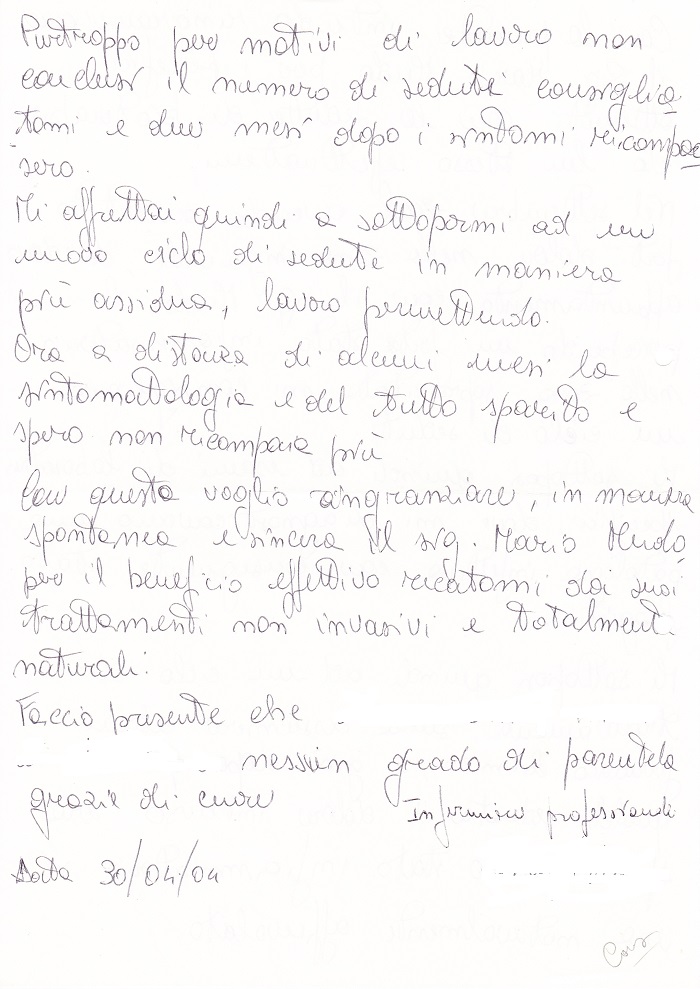 Purtroppo per motivi di lavoro non
conclusi il numero di sedute consiglia
temi e due mesi dopo i sintomi ricompar
sero.
Mi affrettai quindi a sottopormi ad un
nuovo ciclo di sedute in maniera
più assidua, lavoro permettendo.
Ora a distanza di alcuni mesi la
sintomatologia e del tutto sparita e
spero non ricompaia più
Con questa voglio ringranziare, in maniera
spontanea e sincera il sig. Mario
per il beneficio effettivo recatomi dai suoi
trattamenti non invasivi e totalment.
naturali.
Faccio presente che
nessun grado di parentela
grazie di cuore
Infermiere professionale
Data 30/04/04